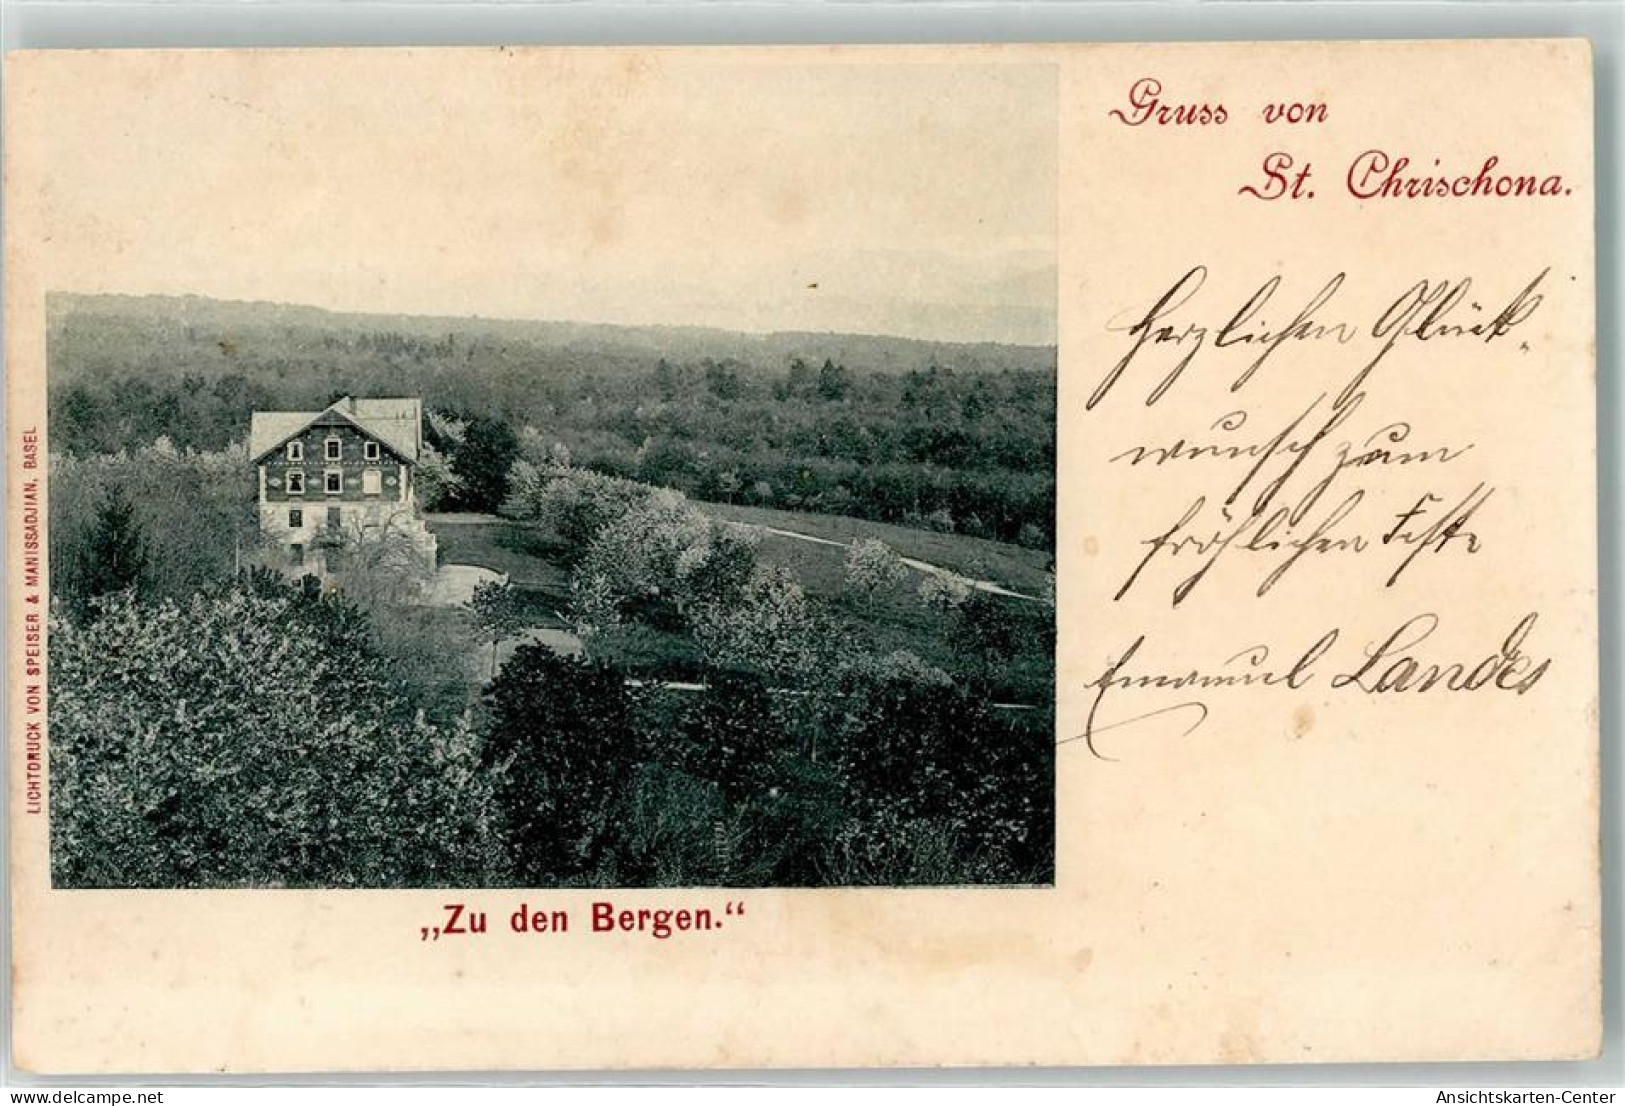 Gruss von
St. Chrischona.
Herzlichen Glück-
wunsch zum
fröhlichen Feste
Emanuel Landes
LICHTDRUCK VON SPEISER & MANISSADJIAN, BASEL
„Zu den Bergen.“
www.delcampe.net
Ansichtskarten-Center